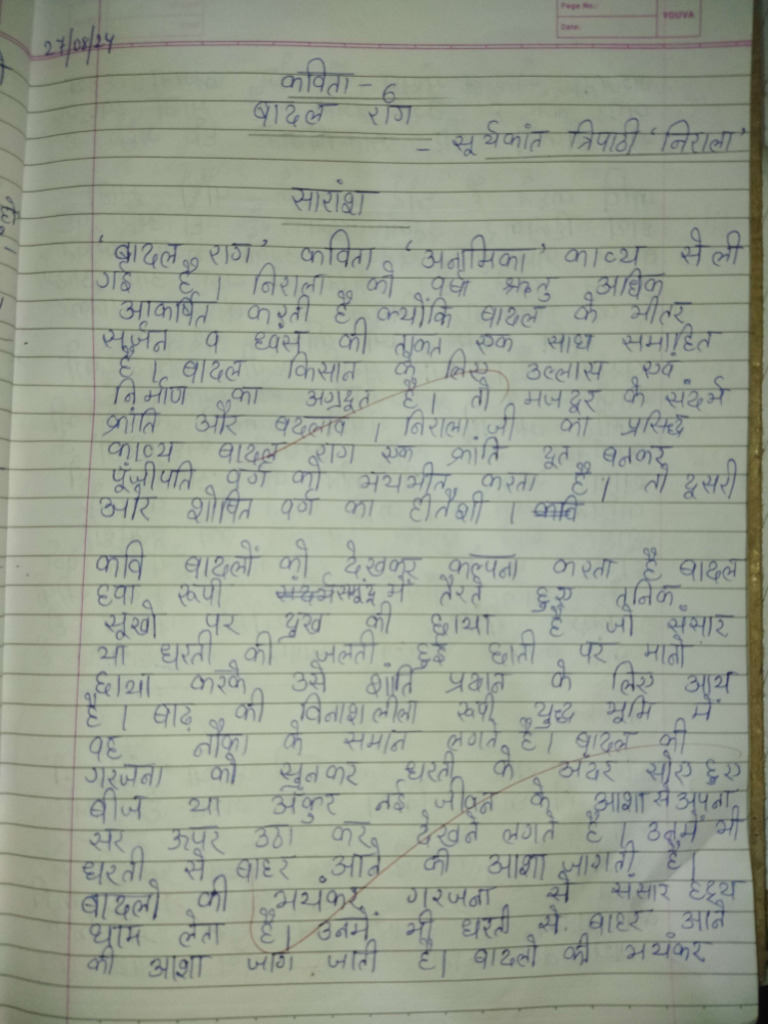 Page No.:
Date:
YOUVA
27/08/24
कविता - 6
बादल राग
- सूर्यकांत त्रिपाठी 'निराला'
सारांश
'बादल राग' कविता 'अनामिका' काव्य से ली
गई है। निराला को वर्षा ऋतु अधिक
आकर्षित करती है क्योंकि बादल के भीतर
सृर्जन व ध्वंस की ताकत एक साथ समाहित
है। बादल किसान के लिए उल्लास एवं
निर्माण का अग्रदूत है। तो मजदूर के संदर्भ
क्रांति और बदलाव। निराला जी का प्रसिद्ध
काव्य बादल राग एक क्रांति दूत बनकर
पूँजीपति वर्ग को भयभीत करता है। तो दूसरी
ओर शोषित वर्ग का हीतैशी। कवि
कवि बादलों को देखकर कल्पना करता है बादल
हवा रूपी समुंद्र में तैरते हुए
सूखो पर दुख की छाया है जो संसार
या धरती की जलती हुई छाती पर मानो
छाया करके उसे शांति प्रदान के लिए आय
है। बाढ़ की विनाशलीला रूपी युद्ध भूमि में
वह नौका के समान लगते है। बादल की
गरजना को सुनकर धरती के अंदर सोए हुए
बीज या अंकुर नई जीवन के आशा से अपना
सर ऊपर उठा कर देखने लगते है। उनमें भी
धरती से बाहर आने की आशा जागती है।
बादलो की भयंकर गरजना से संसार हृदय
थाम लेता है। उनमें भी धरती से बाहर आने
की आशा जाग जाती है। बादलो की भयंकर